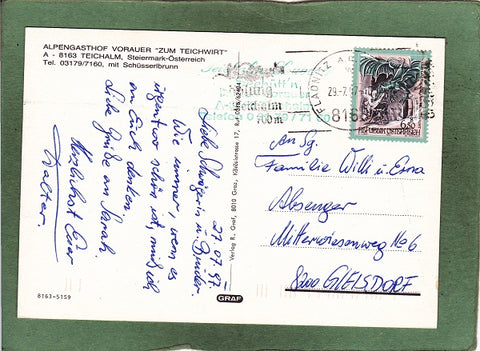 ALPENGASTHOF VORAUER "ZUM TEICHWIRT"
A - 8163 TEICHALM, Steiermark-Österreich
Tel. 03179/7160, mit Schüsserlbrunn
27.07.97
Liebe Schwägerin u. Bruder.
Wie immer, wenn es
irgendwo schön ist, muß ich
an Euch denken
Liebe Grüße an Sarah
Herzlichst Euer
Walter.
8163-5159
Verlag R. Graf, 8010 Graz,
17,
GRAF
FLADNITZ A.D.
29.-7.97
8163
6.50
REPUBLIK ÖSTERREICH
An Sg.
Familie Willi u. Erna
Absenger
Mitterwiesenweg No 6
8200 GLEISDORF